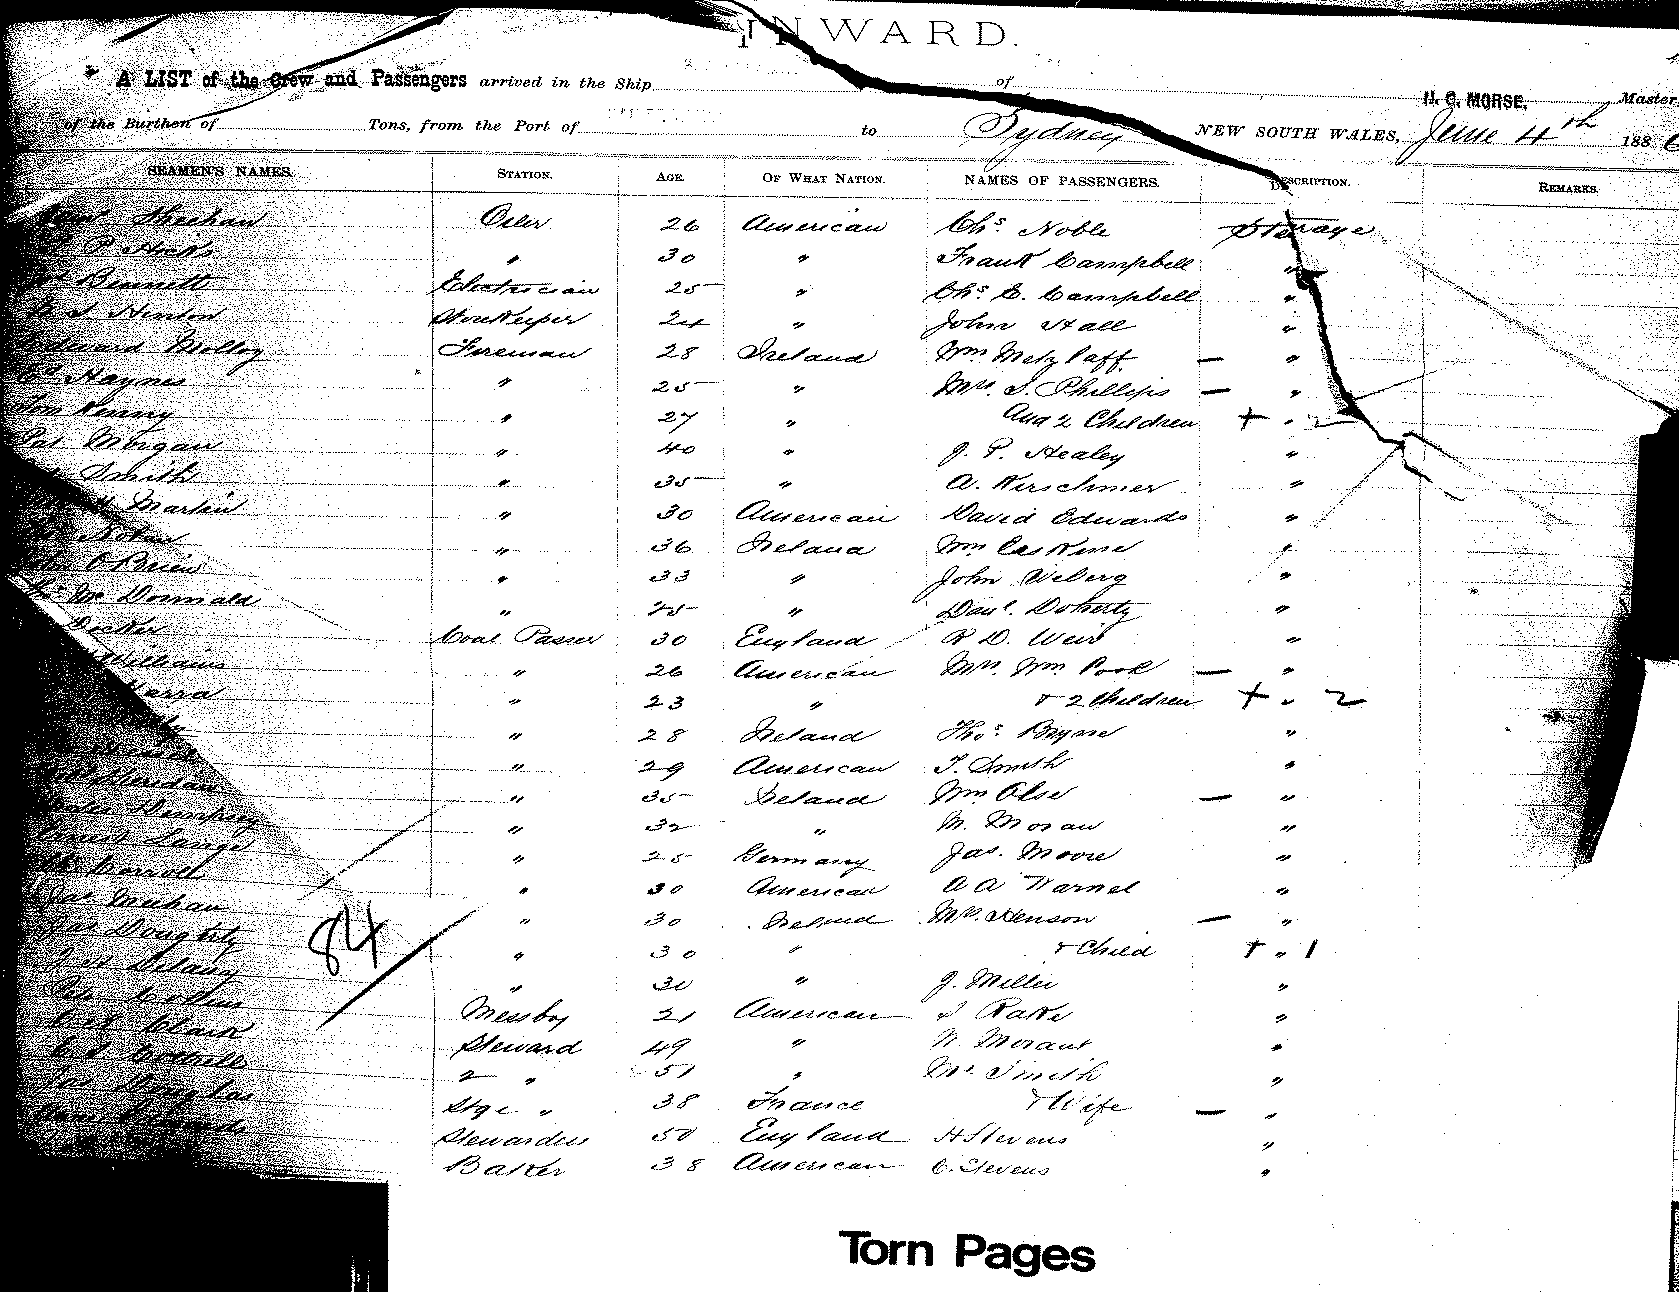 INWARD.
A LIST of the Crew and Passengers arrived in the Ship of H. G. MORSE, Master,
of the Burthen of Tons, from the Port of to Sydney NEW SOUTH WALES, June 4th 188
SEAMEN'S NAMES. STATION. AGE. OF WHAT NATION. NAMES OF PASSENGERS. DESCRIPTION. REMARKS.
Sheehan Oiler 26 American Chs. Noble Steerage
" 30 " Frank Campbell "
Bennett Electrician 25 " Chs. E. Campbell "
Storekeeper 24 " John Hall "
Edward Molloy Fireman 28 Ireland Wm. Metzlaff — "
Haynes " 25 " Mrs. S. Phillips — "
Kenny " 27 " And 2 Children + " 2
Morgan " 40 " J. P. Healey "
Smith " 35 " A. Kirschmer "
Martin " 30 American David Edwards "
Nolan " 36 Ireland Wm. Erskine "
O'Brien " 33 " John Viberg "
Mc Donnald " 25 " Danl. Doherty "
Decker Coal Passer 30 England R D. Weir "
Williams " 26 American Mrs. Wm. Pook — "
" 23 " & 2 Children + " 2
" 28 Ireland Thos. Bryne "
" 29 American T. Smith "
Dempsey " 35 Ireland Wm Olse — "
Lange " 32 " M. Moran "
Carroll " 25 Germany Jas. Moore "
Meehan " 30 American A A Warnel "
Dougherty " 30 Ireland Mrs. Henson — "
84 Delany " 30 " & Child + " 1
" 30 " J. Miller "
Clark Messboy 21 American S Rake "
Cottrell Steward 49 " W. Morant "
Douglas 2 " 51 " Mr. Smith "
Stge " 38 France & Wife — "
Stewardess 50 England H Stevens "
Baker 38 American C. Stevens "
Torn Pages